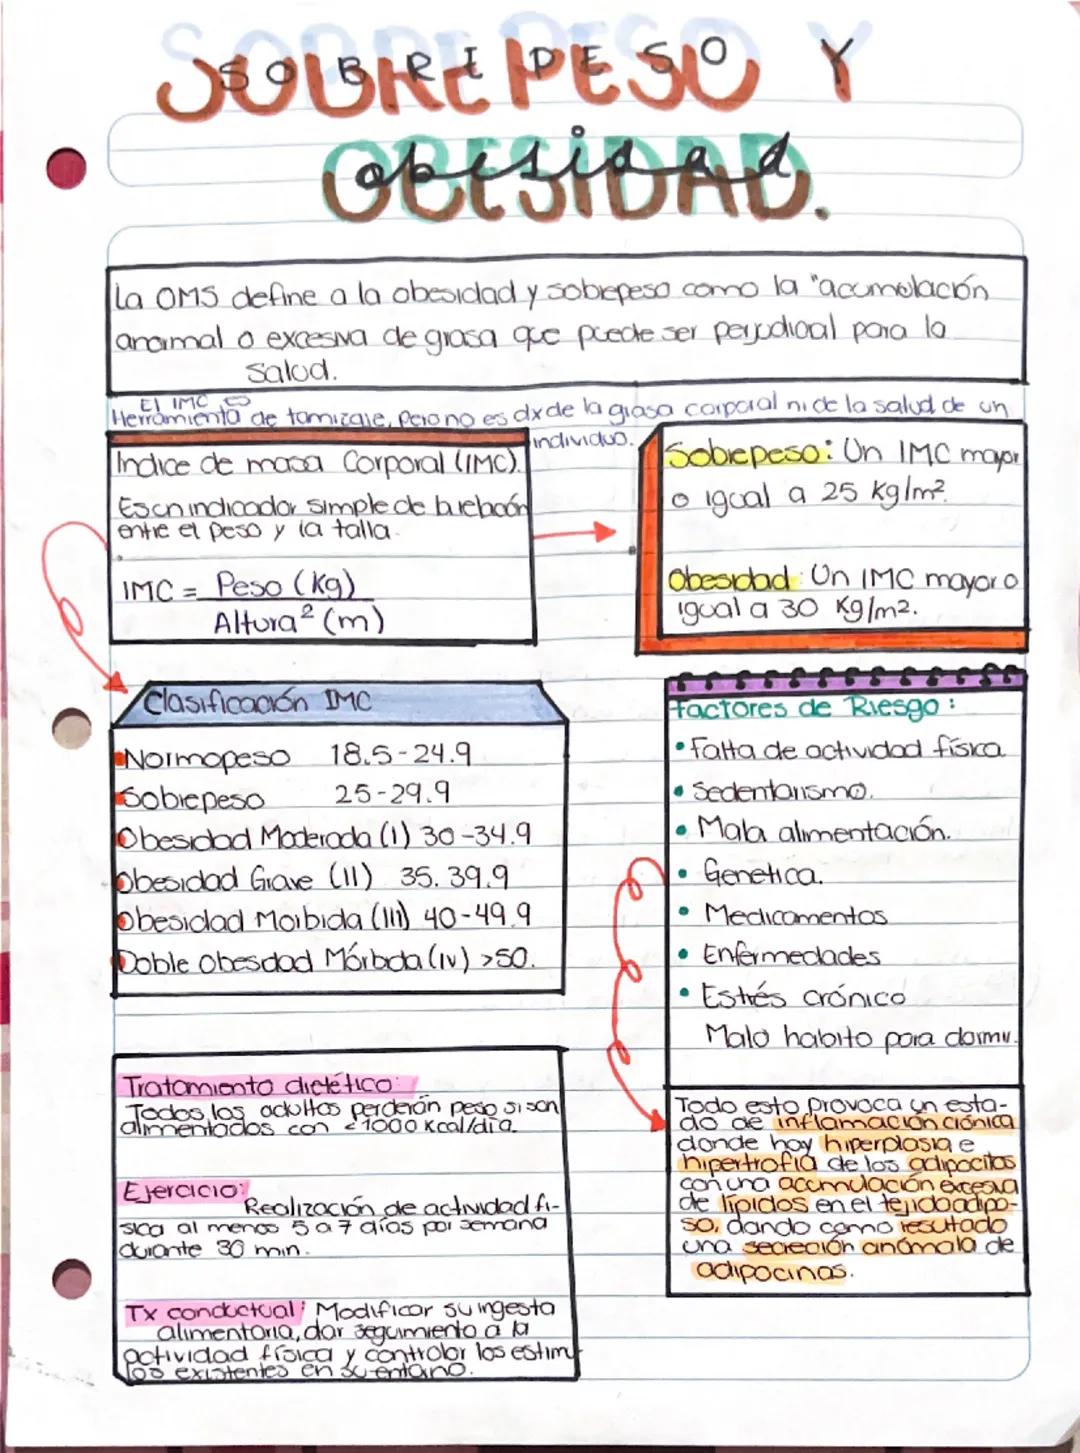 SOBREPESO Y
SOBREPESO
OBESIDAD.
obesidad
La OMS define a la obesidad y sobrepeso como la "acumulación
anormal o excesiva de grasa que puede ser perjudical para la
salud.
El IMC es
Herramienta de tamizaje, pero no es dx de la grasa corporal ni de la salud de un
individuo.
Indice de masa Corporal (IMC).
Es un indicador simple de la relación
entre el peso y la talla.
IMC = Peso (Kg)
Altura² (m)
Sobrepeso: Un IMC mayor
o igual a 25 Kg/m².
Obesidad: Un IMC mayor o
igual a 30 Kg/m².
Clasificación IMC
Normopeso 18.5-24.9
Sobrepeso 25-29.9
Obesidad Moderada (I) 30-34.9
Obesidad Grave (II) 35.39.9
Obesidad Morbida (III) 40-49.9
Doble Obesdad Mórbida (IV) >50.
Factores de Riesgo:
• Falta de actividad física
• Sedentarismo.
• Mala alimentación.
• Genetica.
• Medicamentos
• Enfermedades
• Estrés crónico
Malo habito para dormir.
Todo esto provoca un esta-
do de inflamación crónica
donde hay hiperplasia e
hipertrofia de los adipocitos
con una acumulación excesiva
de lípidos en el tejido adipo-
so, dando como resultado
una secreción anómala de
adipocinas.
Tratamiento dietético:
Todos los adultos perderán peso si son
alimentados con <1000 Kcal/día.
Ejercicio:
Realización de actividad fí-
sica al menos 5 a 7 días por semana
durante 30 min.
Tx conductual: Modificar su ingesta
alimentaria, dar seguimiento a la
actividad física y controlar los estim
los existentes en su entorno.